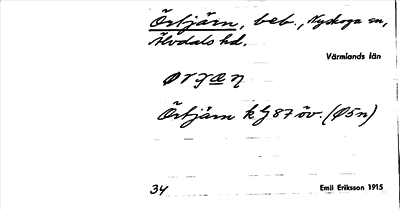 Örtjärn, beb., Nyskoga sn,
Älvdals hd.
Värmlands län
Örtjärn k Ij 87 öv. (Ø5n)
34 Emil Eriksson 1915